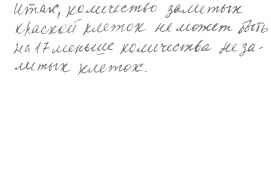 Итак, количество залитых
краской клеток не может быть
на 17 меньше количества неза-
литых клеток.